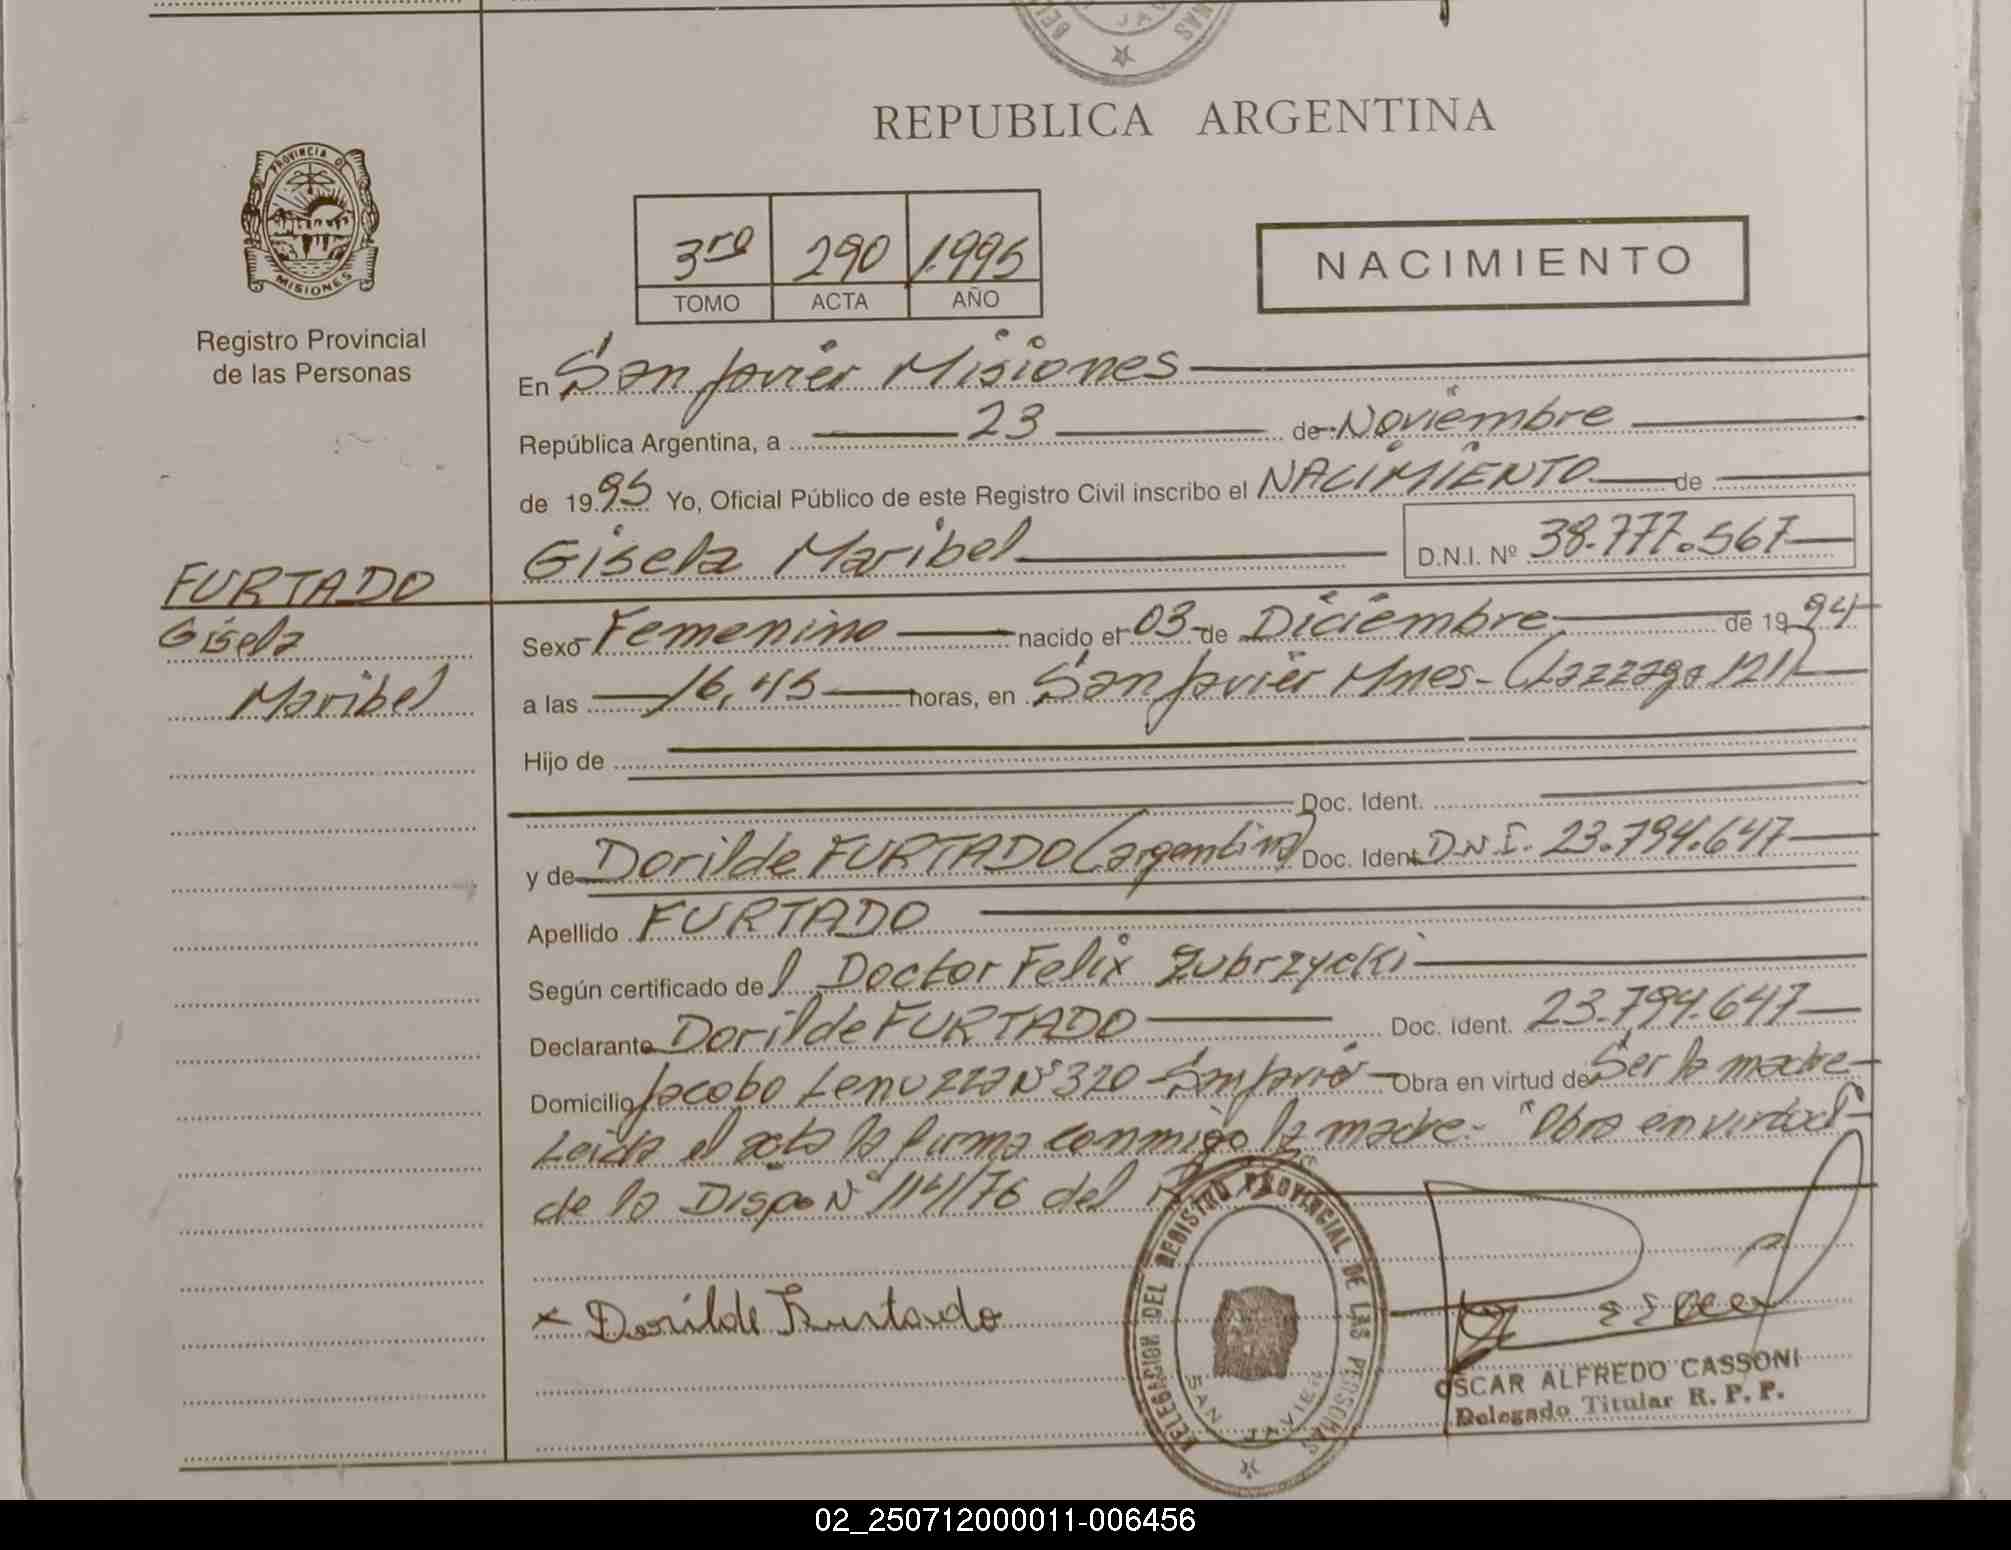 JAV
REPUBLICA ARGENTINA
PROVINCIA DE
MISIONES
Registro Provincial
de las Personas
3ro 290 1.995
TOMO ACTA AÑO
NACIMIENTO
En San Javier Misiones
República Argentina, a 23 de Noviembre
de 1995 Yo, Oficial Público de este Registro Civil inscribo el NACIMIENTO de
Gisela Maribel D.N.I. Nº 38.777.567
FURTADO
Gisela
Maribel
Sexo Femenino nacido el 03 de Diciembre de 1994
a las 16,45 horas, en San Javier Mnes- (Lazzaga 1211)
Hijo de
Doc. Ident.
y de Dorilde FURTADO (argentina) Doc. Ident D.N.I. 23.794.647
Apellido FURTADO
Según certificado del Doctor Felix Zubrzycki
Declarante Dorilde FURTADO Doc. Ident. 23.794.647
Domicilio Jacobo Lenuzza Nº 320 San Javier Obra en virtud de Ser la madre
Leida el acta la firma conmigo la madre.- "Obra en virtud
de la Dispo Nº 114/76 del
x Dorilde Furtado
DELEGACION DEL REGISTRO PROVINCIAL DE LAS PERSONAS
SAN JAVIER
OSCAR ALFREDO CASSONI
Delegado Titular R. P. P.
02_250712000011-006456